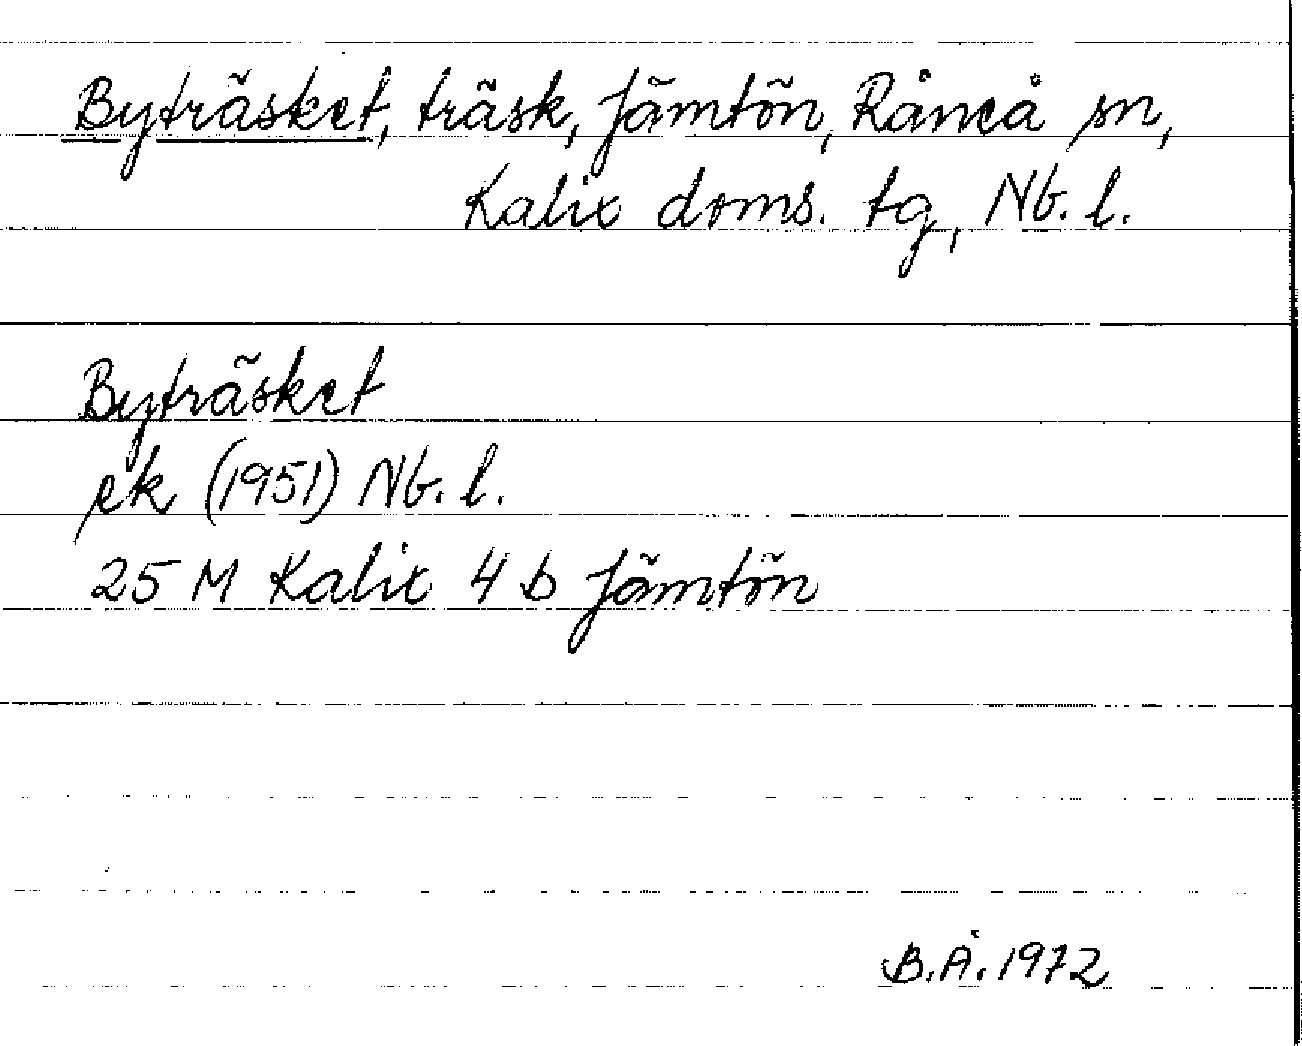 Byträsket, träsk, Jämtön, Råneå sn,
Kalix doms. tg, Nb. l.
Byträsket
ek (1951) Nb. l.
25 M Kalix 4 b Jämtön
B.Å. 1972